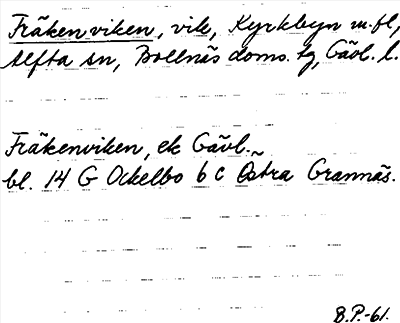 Fräkenviken, vik, Kyrkbyn m.fl,
Alfta sn, Bollnäs doms. tg, Gävl. l.
Fräkenviken, ek Gävl.
bl. 14 G Ockelbo 6 c Östra Grannäs.
B.P.-61.